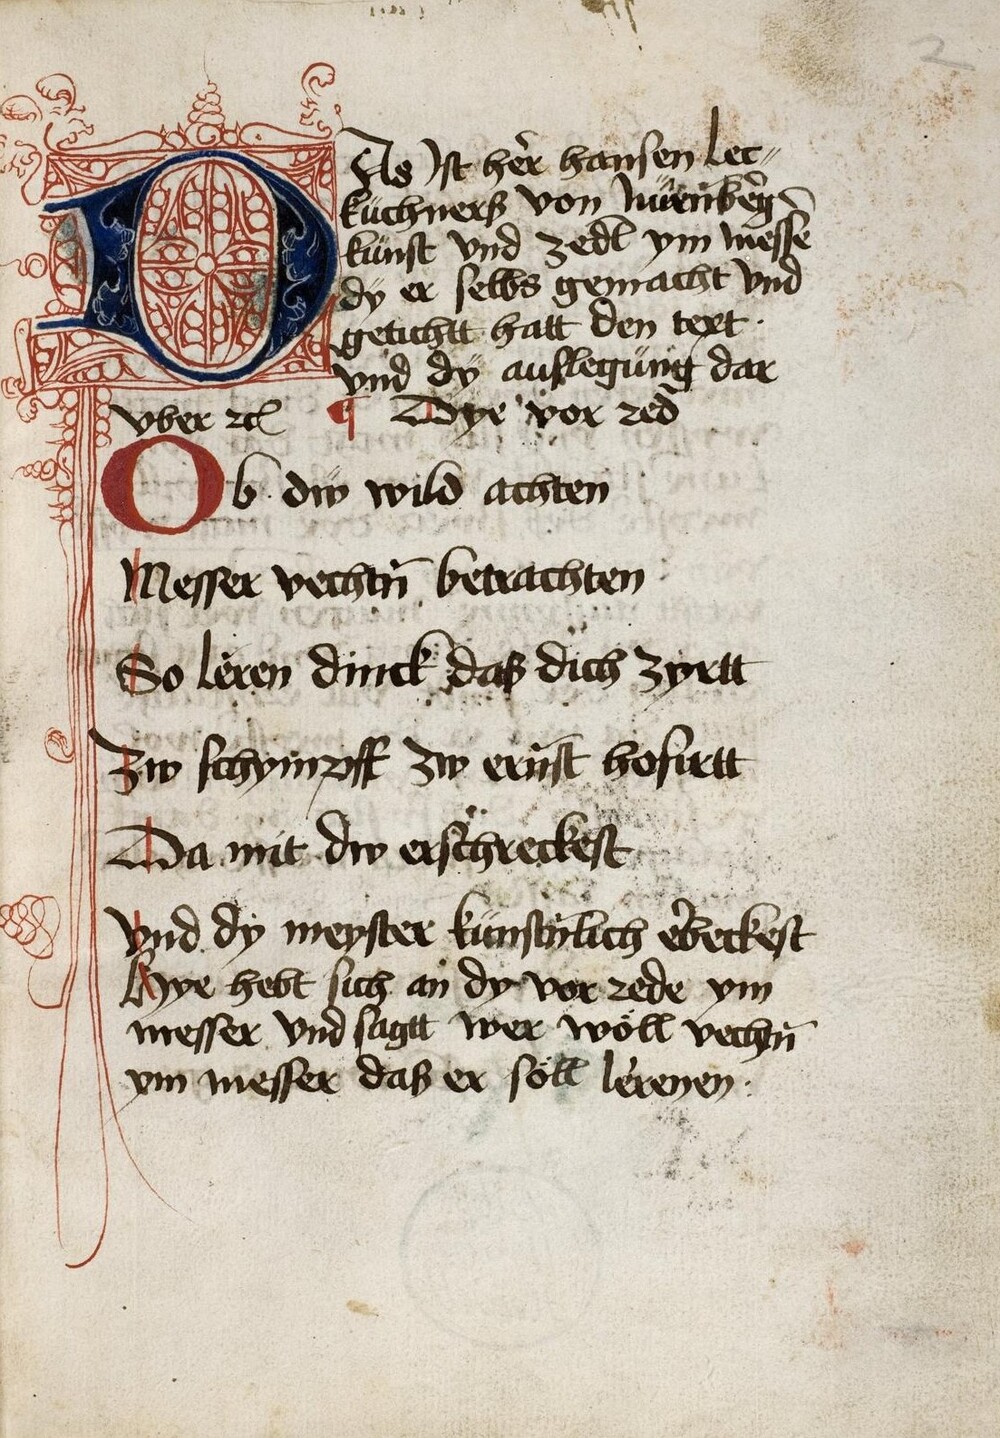 2
DAs Ist her hansen Lec-
küchners von Nürenberg
künst vnd zedl ym messer
dy er selbs gemacht vnd
getichtt hatt den text ·
vnd dÿ auslegüng dar
vber ꝛc ¶ Dye vor red
Ob dw wild achten
Messer vechtn̄ betrachten
So leren dinck daß dich zyrtt
Zw schympff zw ernst hofirtt
Da mit dw erschreckest
Vnd dy meyster künstñlich erbeckest
Hye hebt sich an dy vor rede ym
messer vnd sagtt wer wöll vechtn̄
ym messer daß er söll lerenen ·